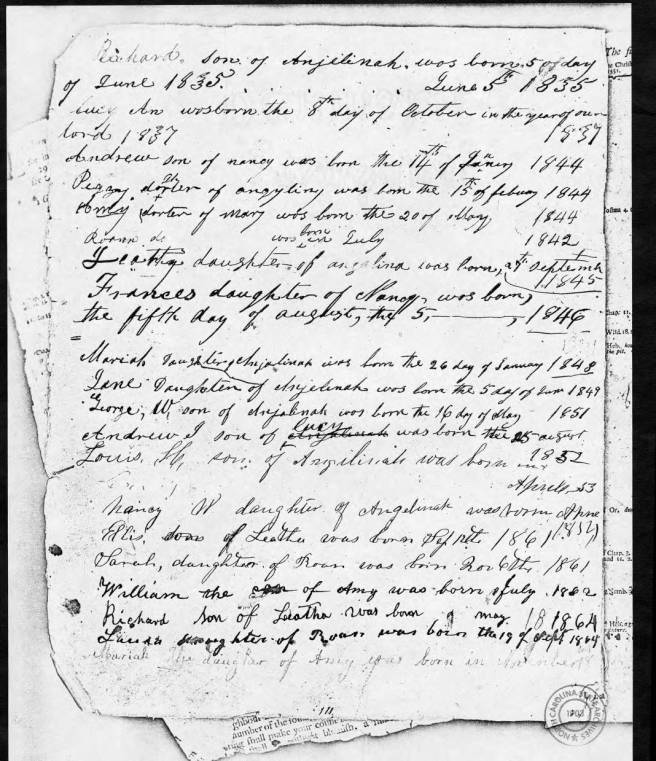 Richard. son of Anjelinah. was born. 5 of day
of June 1835. June 5th 1835
Lucy An wos born the 8th day of October in the year of our
lord 1837 1837
Andrew son of nancy was born the 14th of Janury 1844
dorter of angyliny was born the 15th of febuay 1844
Amy dorter of mary wos born the 20 of May 1844
Roann wos born in July 1842
Leathy daughter of angalina was born, septemb
1845
Frances daughter of Nancy, wos born,
the fifth day of august, the 5, 1846
Mariah Daughter of Anjalinah was born the 26 day of January 1848
Jane Daughter of Anjelinah wos born the 5 day of June 1849
George, W, son of Anjalinah wos born the 16 day of May 1851
Andrew J son of lucy was born the 25 august
1852
Louis, son of Angilinah was born
April 53
Nancy W daughter of Angelinah was born
Ellis, son of Leatha was born Sept 1861
Sarah, daughter of Roan was born Nov 6th, 1861
William the son of Amy was born July 1862
Richard son of Leatha was born may 1864
daughter of Roan was born the 19 of Sept 1864
Mariah The daughter of Amy was born in November
NORTH CAROLINA STATE ARCHIVES
1903